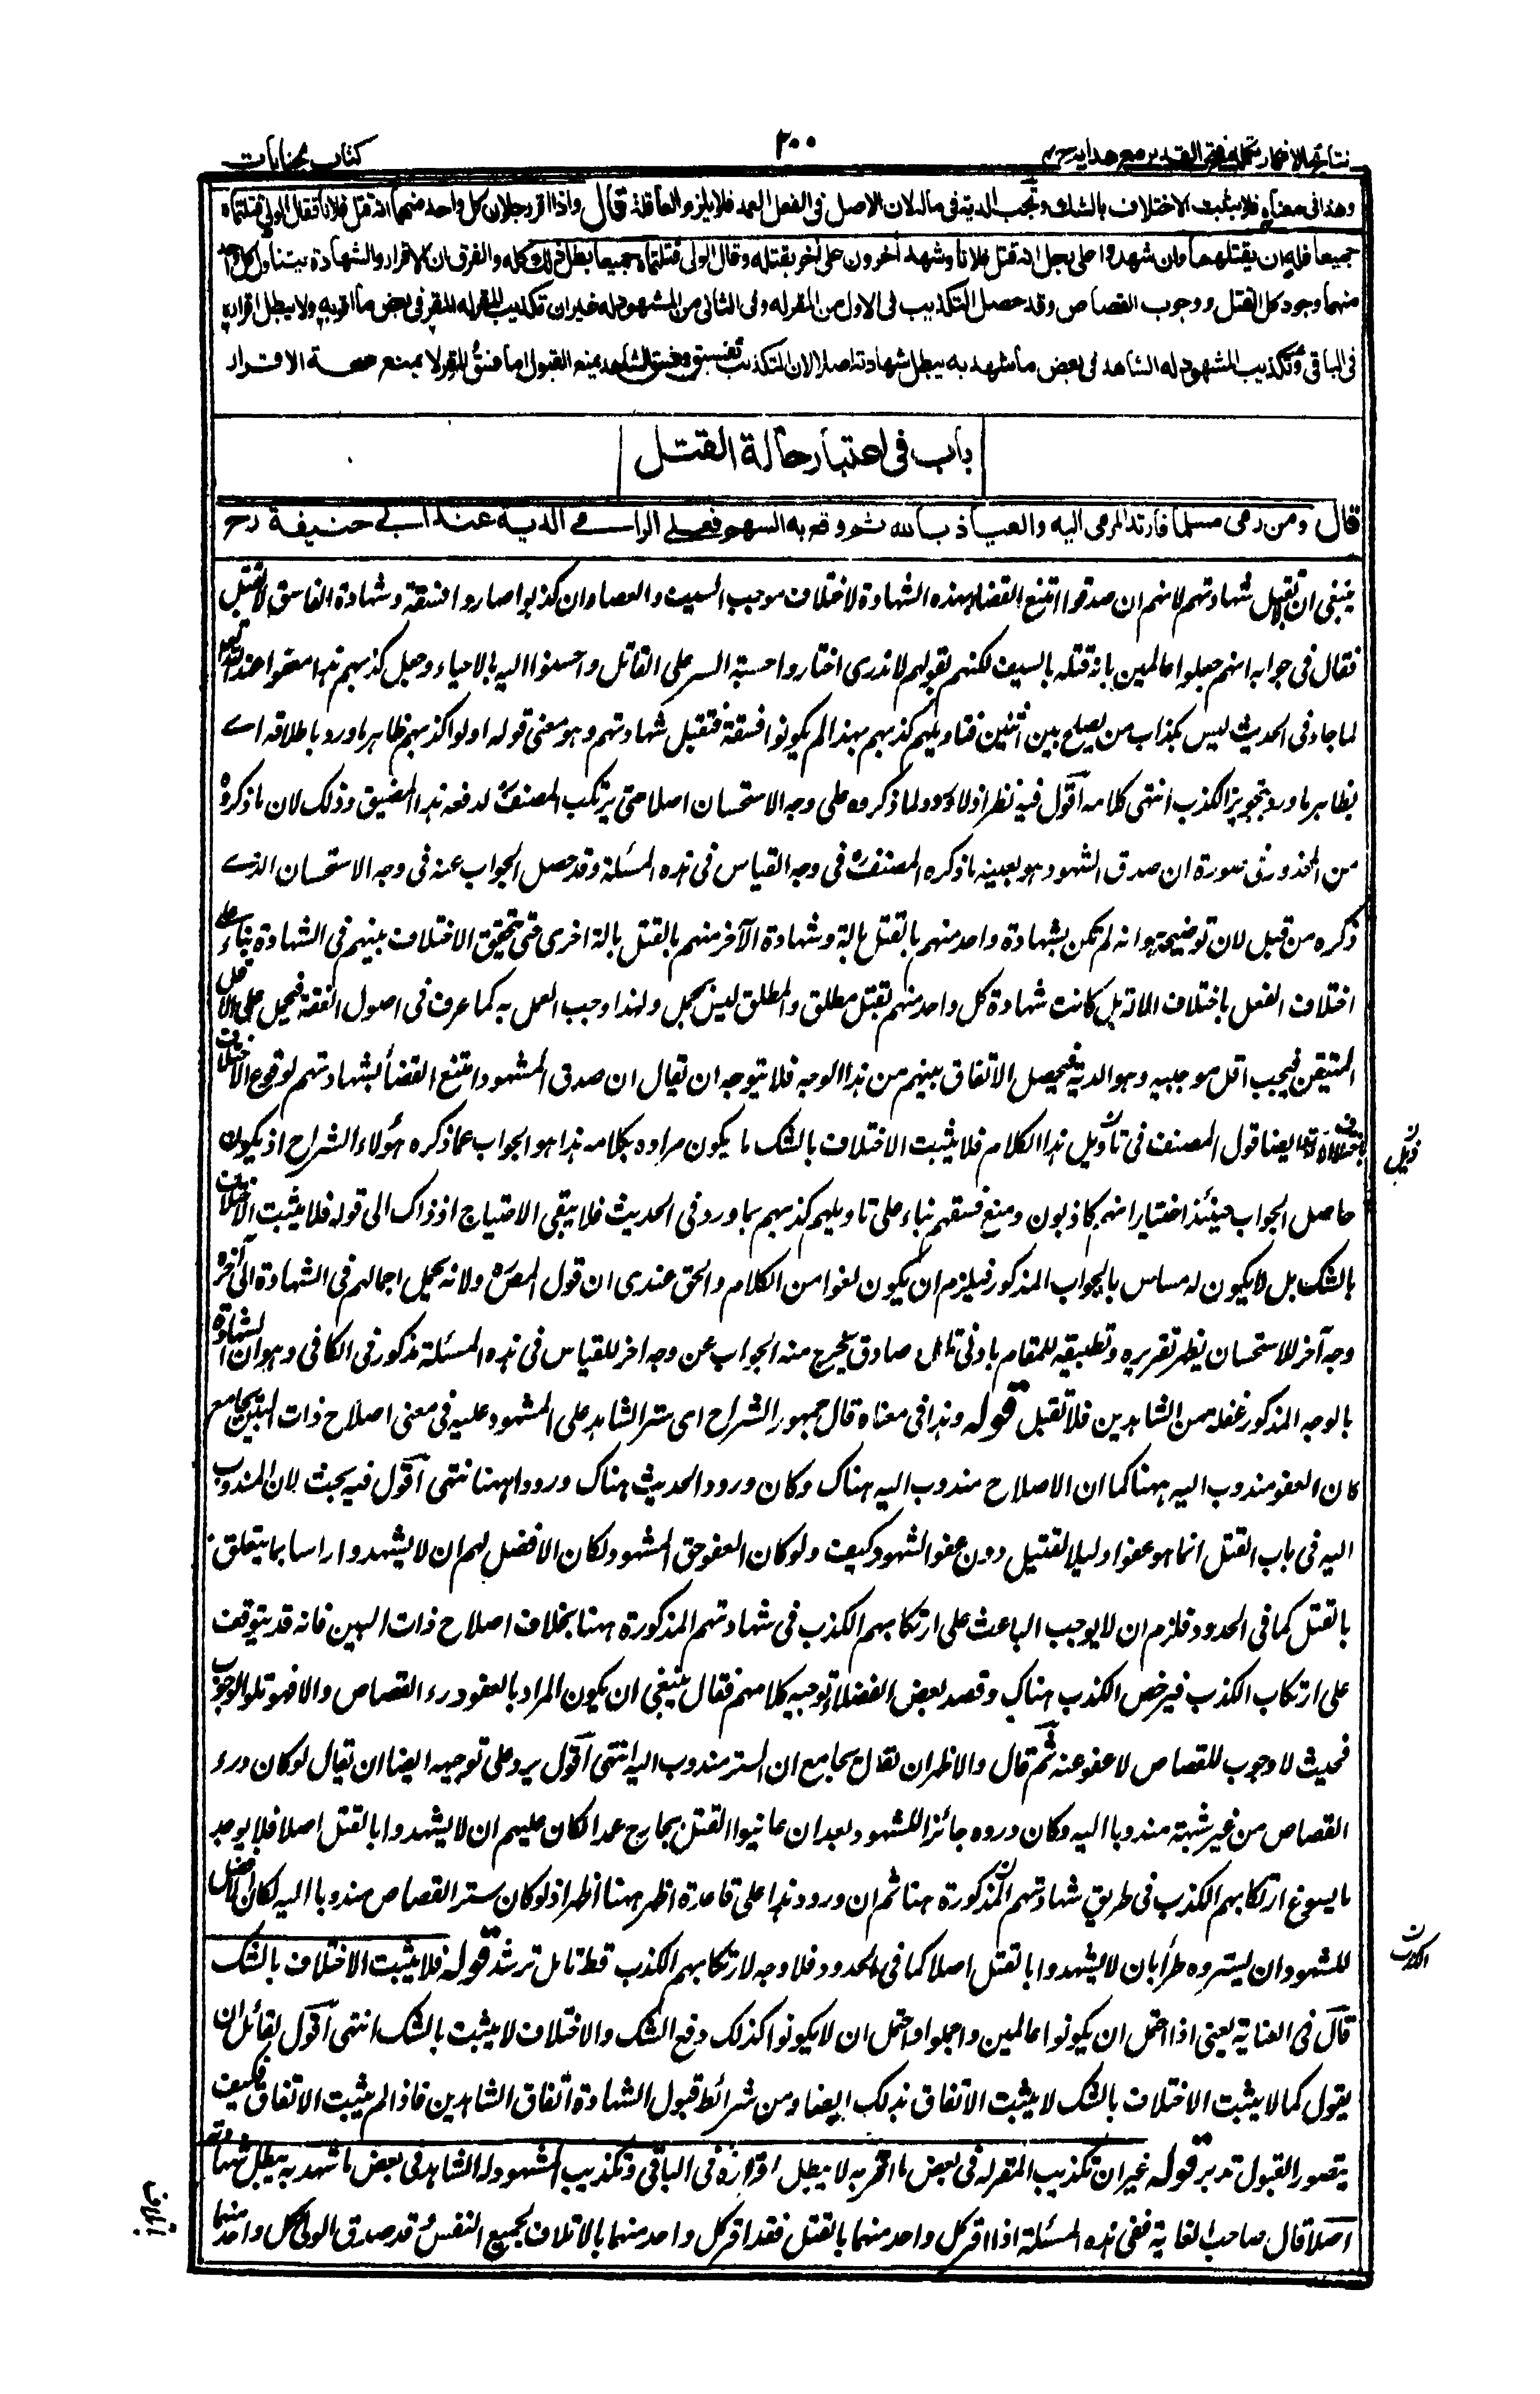 نتائج الافكار تكملة فتح القدير مع هدايه ج ٤
٣٠٠
كتاب الجنايات
وهذا فى معناه فلا يثبت الاختلاف بالشك وتجب الدية فى ماله لان الاصل فى الفعل العمد فلا يلزم العاقلة قال واذا اقر رجلان كل واحد منهما انه قتل فلانا فقال الولى قتلتماه
جميعا فله ان يقتلهما وان شهدوا على رجل انه قتل فلانا وشهد اخرون على اخر بقتله وقال الولى قتلتماه جميعا بطل ذلك كله والفرق ان الاقرار والشهادة يتناول كل واحد
منهما وجود كل القتل ووجوب القصاص وقد حصل التكذيب فى الاول من المقر له وفى الثانى من المشهود له غير ان تكذيب المقر له المقر فى بعض ما اقر به ولا يبطل اقراره
فى الباقى وتكذيب المشهود له الشاهد فى بعض ما شهد به يبطل شهادته اصلا لان التكذيب تفسيق وفسق الشاهد يمنع القبول اما فسق المقر لا يمنع صحة الاقرار
باب فى اعتبار حالة القتل
قال ومن رمى مسلما فارتد المرمى اليه والعياذ بالله ثم وقع به السهم فعلى الرامى الدية عند ابى حنيفة رح
ينبغى ان لا تقبل شهادتهم لانهم ان صدقوا امتنع القضاء بهذه الشهادة لاختلاف موجب السيف والعصا وان كذبوا صاروا فسقة وشهادة الفاسق لا تقبل
فقال فى جوابه انهم جعلوا عالمين بانه قتله بالسيف لكنهم بقولهم لا ندرى اختاروا حسبة الستر على القاتل واحسنوا اليه بالاحياء وجعل كذبهم هذا معفوا عند الله تعالى
لما جاء فى الحديث ليس بكذاب من يصلح بين اثنين فتاويلهم كذبهم بهذا لم يكونوا فسقة فتقبل شهادتهم وهو معنى قوله اولوا كذبهم بظاهر ما ورد باطلاقه اى
بظاهر ما ورد بتجويز الكذب انتهى كلامه اقول فيه نظر اذ لا ورود لما ذكروه على وجه الاستحسان اصلا حتى يرتكب المصنف لدفعه هذا المضيق وذلك لان ما ذكروه
من المحذور فى صورة ان صدق الشهود هو بعينه ما ذكره المصنف فى وجه القياس فى هذه المسئلة وقد حصل الجواب عنه فى وجه الاستحسان الذى
ذكره من قبل لان توضيحه هو انه لم تكن بشهادة واحد منهم بالقتل بالة وشهادة الآخر منهم بالقتل بالة اخرى حتى تحقق الاختلاف بينهم فى الشهادة بناء على
اختلاف الفعل باختلاف الالة بل كانت شهادة كل واحد منهم بقتل مطلق والمطلق ليس بمجمل ولهذا وجب العمل به كما عرف فى اصول الفقه فيحمل على الاقل
المتيقن فيجب اقل موجبيه وهو الدية فيحصل الاتفاق بينهم من هذا الوجه فلا يتوجه ان يقال ان صدق المشهود امتنع القضاء بشهادتهم لوقوع الاختلاف
باختلاف الالة وايضا قول المصنف فى تأويل هذا الكلام فلا يثبت الاختلاف بالشك ما يكون مراده بكلامه هذا هو الجواب عما ذكره هؤلاء الشراح اذ يكون
حاصل الجواب حينئذ اختيار انهم كاذبون ومنع فسقهم بناء على تاويلهم كذبهم بما ورد فى الحديث فلا يبقى الاحتياج اذ ذاك الى قوله فلا يثبت الاختلاف
بالشك بل لا يكون له مساس بالجواب المذكور فيلزم ان يكون لغوا من الكلام والحق عندى ان قول المص ولانه يحمل اجمالهم فى الشهادة الى آخره
وجه آخر للاستحسان يظهر تقريره وتطبيقه للمقام بادنى تامل صادق يخرج منه الجواب عن وجه اخر للقياس فى هذه المسئلة مذكور فى الكافى وهو ان الشهادة
بالوجه المذكور غفلة من الشاهدين فلا تقبل قوله وهذا فى معناه قال جمهور الشراح اى ستر الشاهد على المشهود عليه فى معنى اصلاح ذات البين بجامع
كان العفو مندوب اليه ههنا كما ان الاصلاح مندوب اليه هناك وكان ورود الحديث هناك ورودا ههنا انتهى اقول فيه بحث لان المندوب
اليه فى باب القتل انما هو عفو اولياء القتيل دون عفو الشهود كيف ولو كان العفو حق المشهود لكان الافضل لهم ان لا يشهدوا راسا بما يتعلق
بالقتل كما فى الحدود فلزم ان لا يوجب الباعث على ارتكابهم الكذب فى شهادتهم المذكورة ههنا بخلاف اصلاح ذات البين فانه قد يتوقف
على ارتكاب الكذب فيرخص الكذب هناك وقصد بعض الفضلاء توجيه كلامهم فقال ينبغى ان يكون المراد بالعفو درء القصاص والا فهو تلو الوجوب
فحيث لا وجوب للقصاص لا عفو عنه ثم قال والاظهر ان يقال بجامع ان الستر مندوب اليه انتهى اقول يرد على توجيهه ايضا ان يقال لو كان درء
القصاص من غير شبهة مندوبا اليه وكان دروه جائزا للشهود بعد ان عاينوا القتل بجارح عمدا لكان عليهم ان لا يشهدوا بالقتل اصلا فلا يوجد
ما يسوغ ارتكابهم الكذب فى طريق شهادتهم المذكورة ههنا ثم ان ورود هذا على قاعدة اظهر ههنا اظهر اذ لو كان ستر القصاص مندوبا اليه لكان الافضل
للشهود ان يستروه طرأ بان لا يشهدوا بالقتل اصلا كما فى الحدود فلا وجه لارتكابهم الكذب قط تامل ترشد قوله فلا يثبت الاختلاف بالشك
قال فى العناية يعنى اذا احتمل ان يكونوا عالمين واجملوا واحتمل ان لا يكونوا كذلك وقع الشك والاختلاف لا يثبت بالشك انتهى اقول لقائل ان
يقول كما لا يثبت الاختلاف بالشك لا يثبت الاتفاق بذلك ايضا ومن شرائط قبول الشهادة اتفاق الشاهدين فاذا لم يثبت الاتفاق فكيف
يتصور القبول تدبر قوله غير ان تكذيب المقر له فى بعض ما اقر به لا يبطل اقراره فى الباقى وتكذيب المشهود له الشاهد فى بعض ما شهد به يبطل شهادته
اصلا قال صاحب الغاية ففى هذه المسئلة اذا اقر كل واحد منهما بالقتل فقد اقر كل واحد منهما بالاتلاف لجميع النفس وقد صدق الولى كل واحد منهما